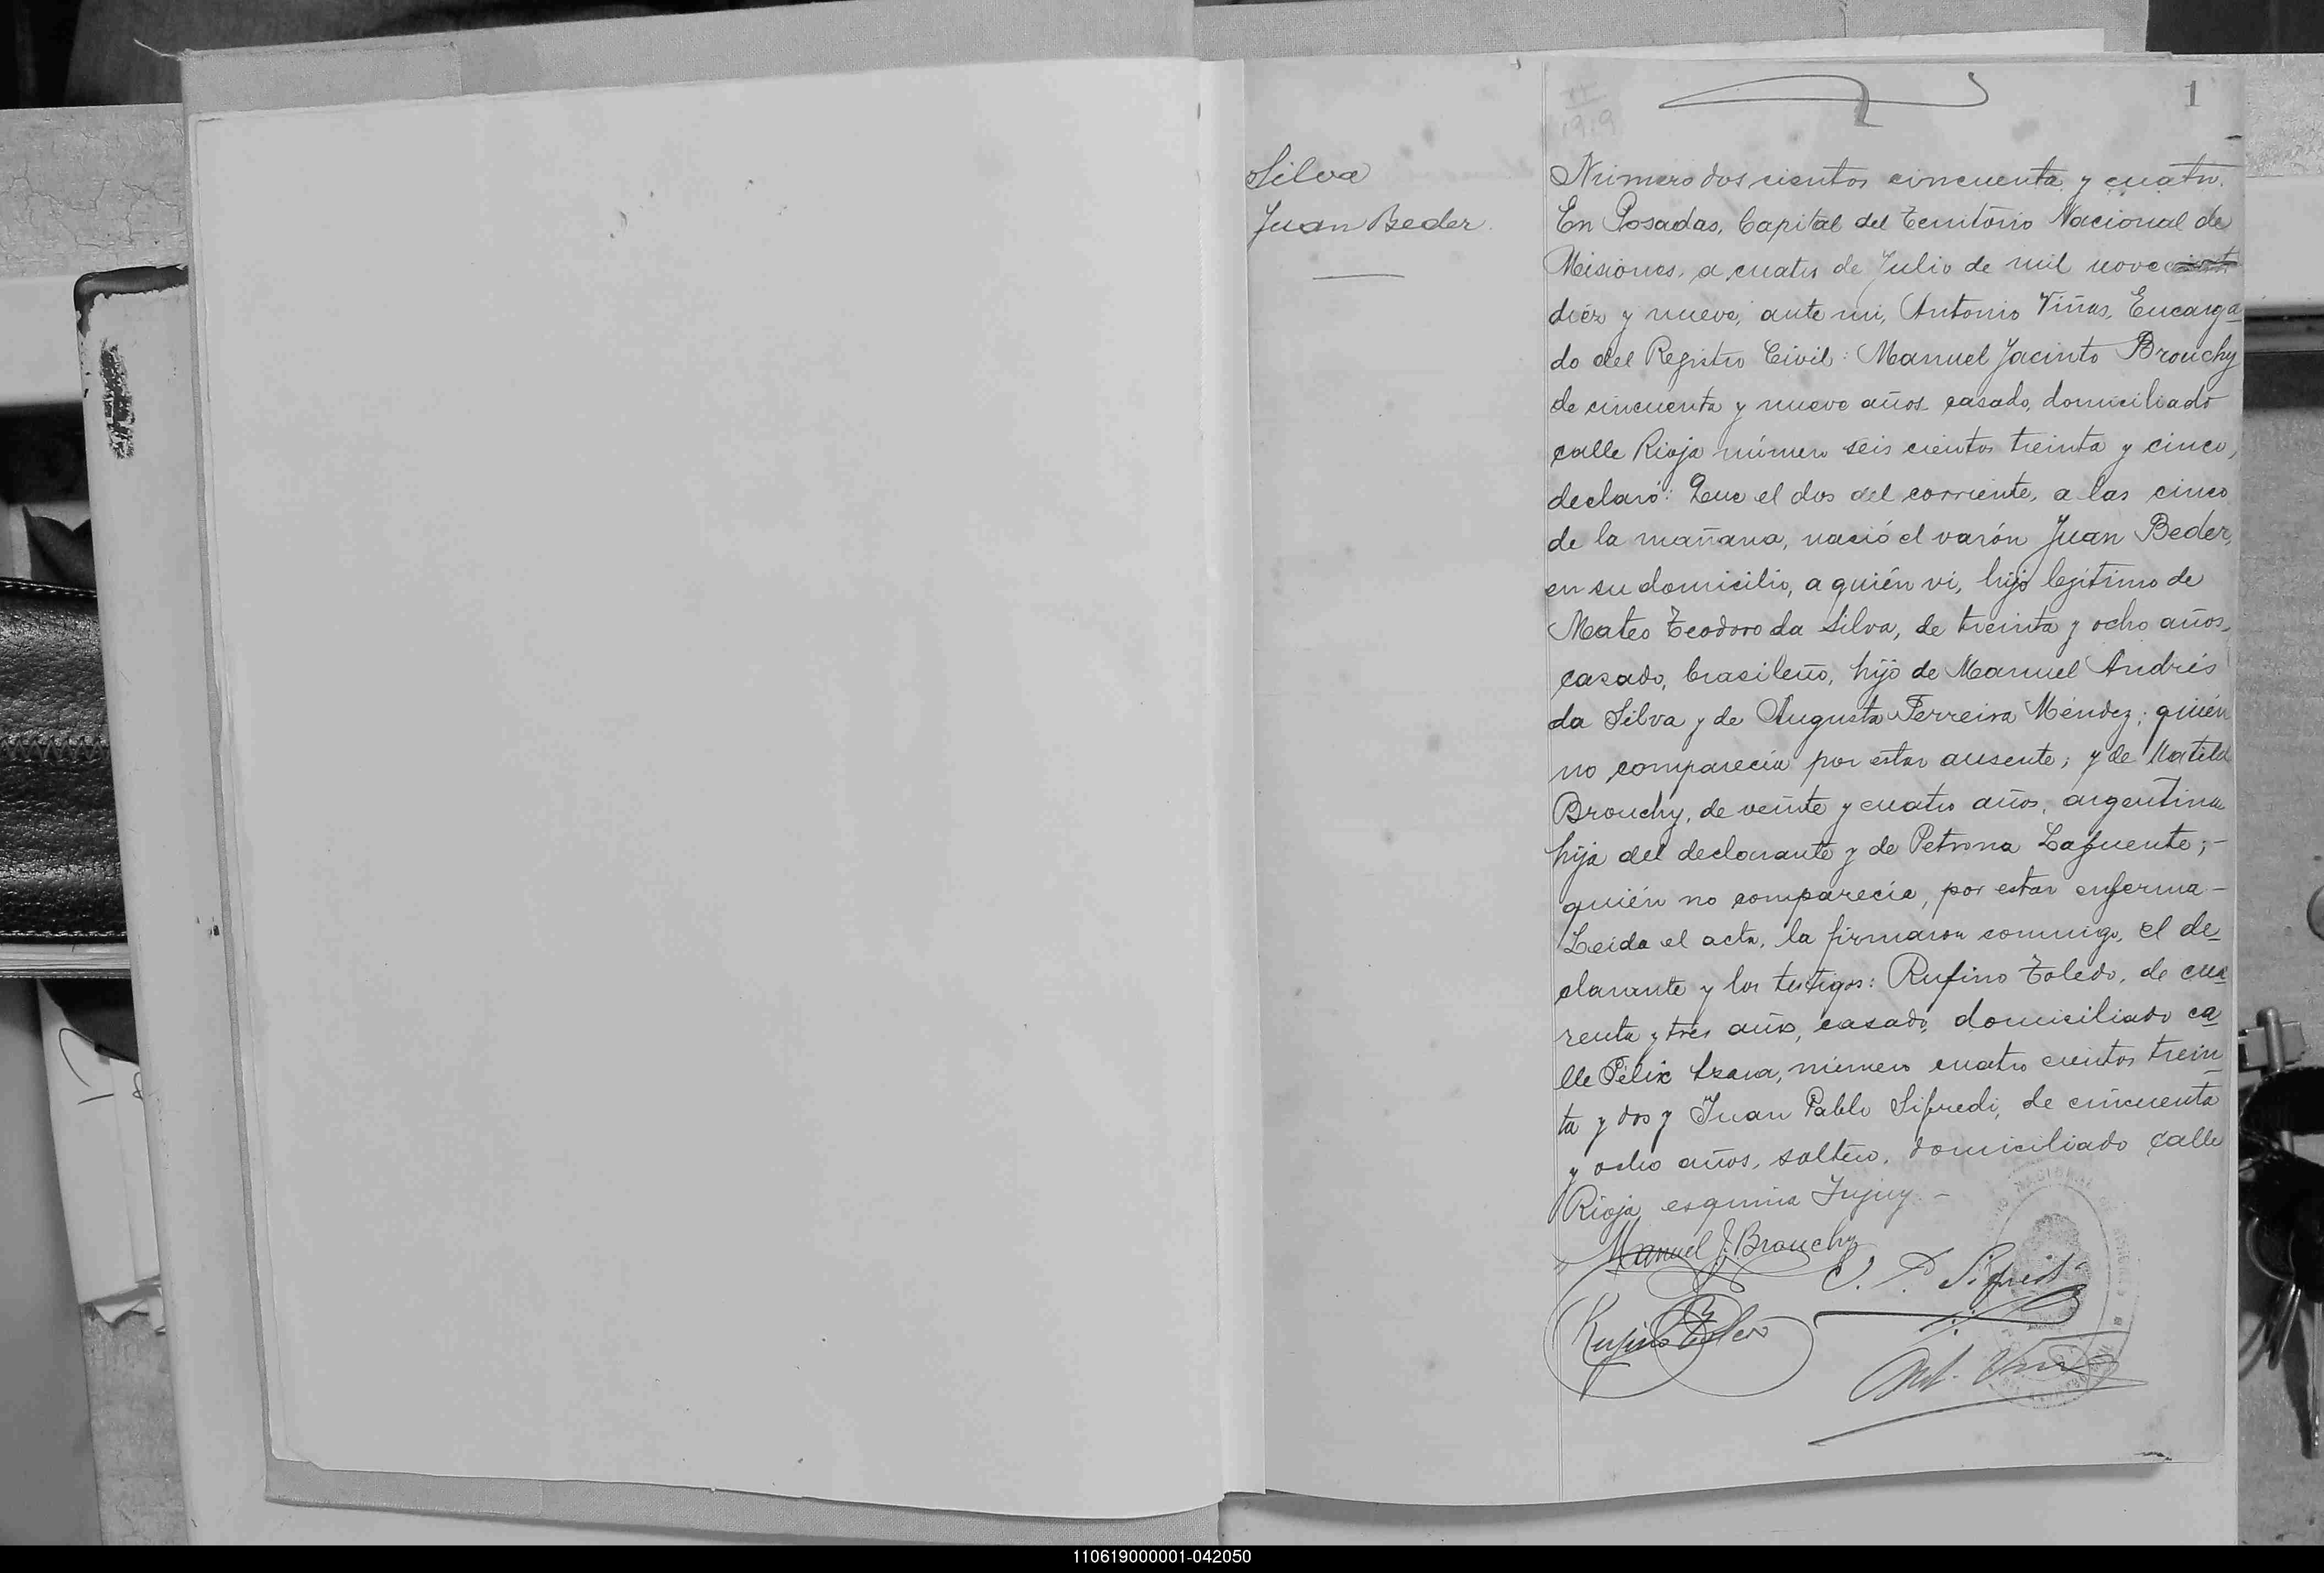 1
1919
Silva
Juan Beder.
Número dos cientos cincuenta y cuatro.
En Posadas, Capital del Territorio Nacional de
Misiones, a cuatro de Julio de mil nove
diéz y nueve, ante mi, Antonio Viñas, Encarga
do del Registro Civil: Manuel Jacinto Brouchy
de cincuenta y nueve años casado, domiciliado
calle Rioja número seis cientos treinta y cinco,
declaró: Que el dos del corriente, a las cinco
de la mañana, nació el varón Juan Beder,
en su domicilio, a quién vi, hijo legítimo de
Mateo Teodoro da Silva, de treinta y ocho años,
casado, brasileño, hijo de Manuel Andrés
da Silva y de Augusta Ferreira Méndez; quién
no comparecía por estar ausente; y de Matild
Brouchy, de veinte y cuatro años, argentina
hija del declarante y de Petrona Lafuente;-
quién no comparecía, por estar enferma-
Leida el acta, la firmaron conmigo, el de-
clarante y los testigos: Rufino Toledo, de cua
renta y tres años, casado, domiciliado ca
lle Félix Azara, número cuatro cientos trein
ta y dos y Juan Pablo Sifredi, de cincuenta
y ocho años, soltero, domiciliado calle
Rioja esquina Jujuy.-
Manuel J. Brouchy
J. P. Sifredi
Rufino Toledo
Ant. Viñas
110619000001-042050